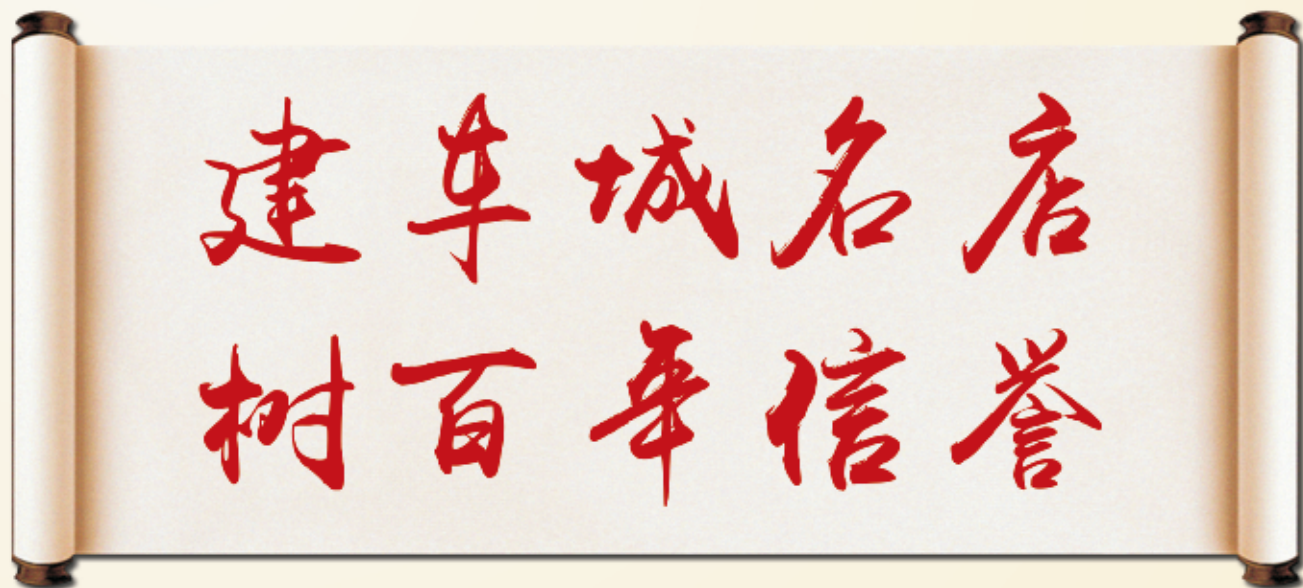 建车城名店
树百年信誉